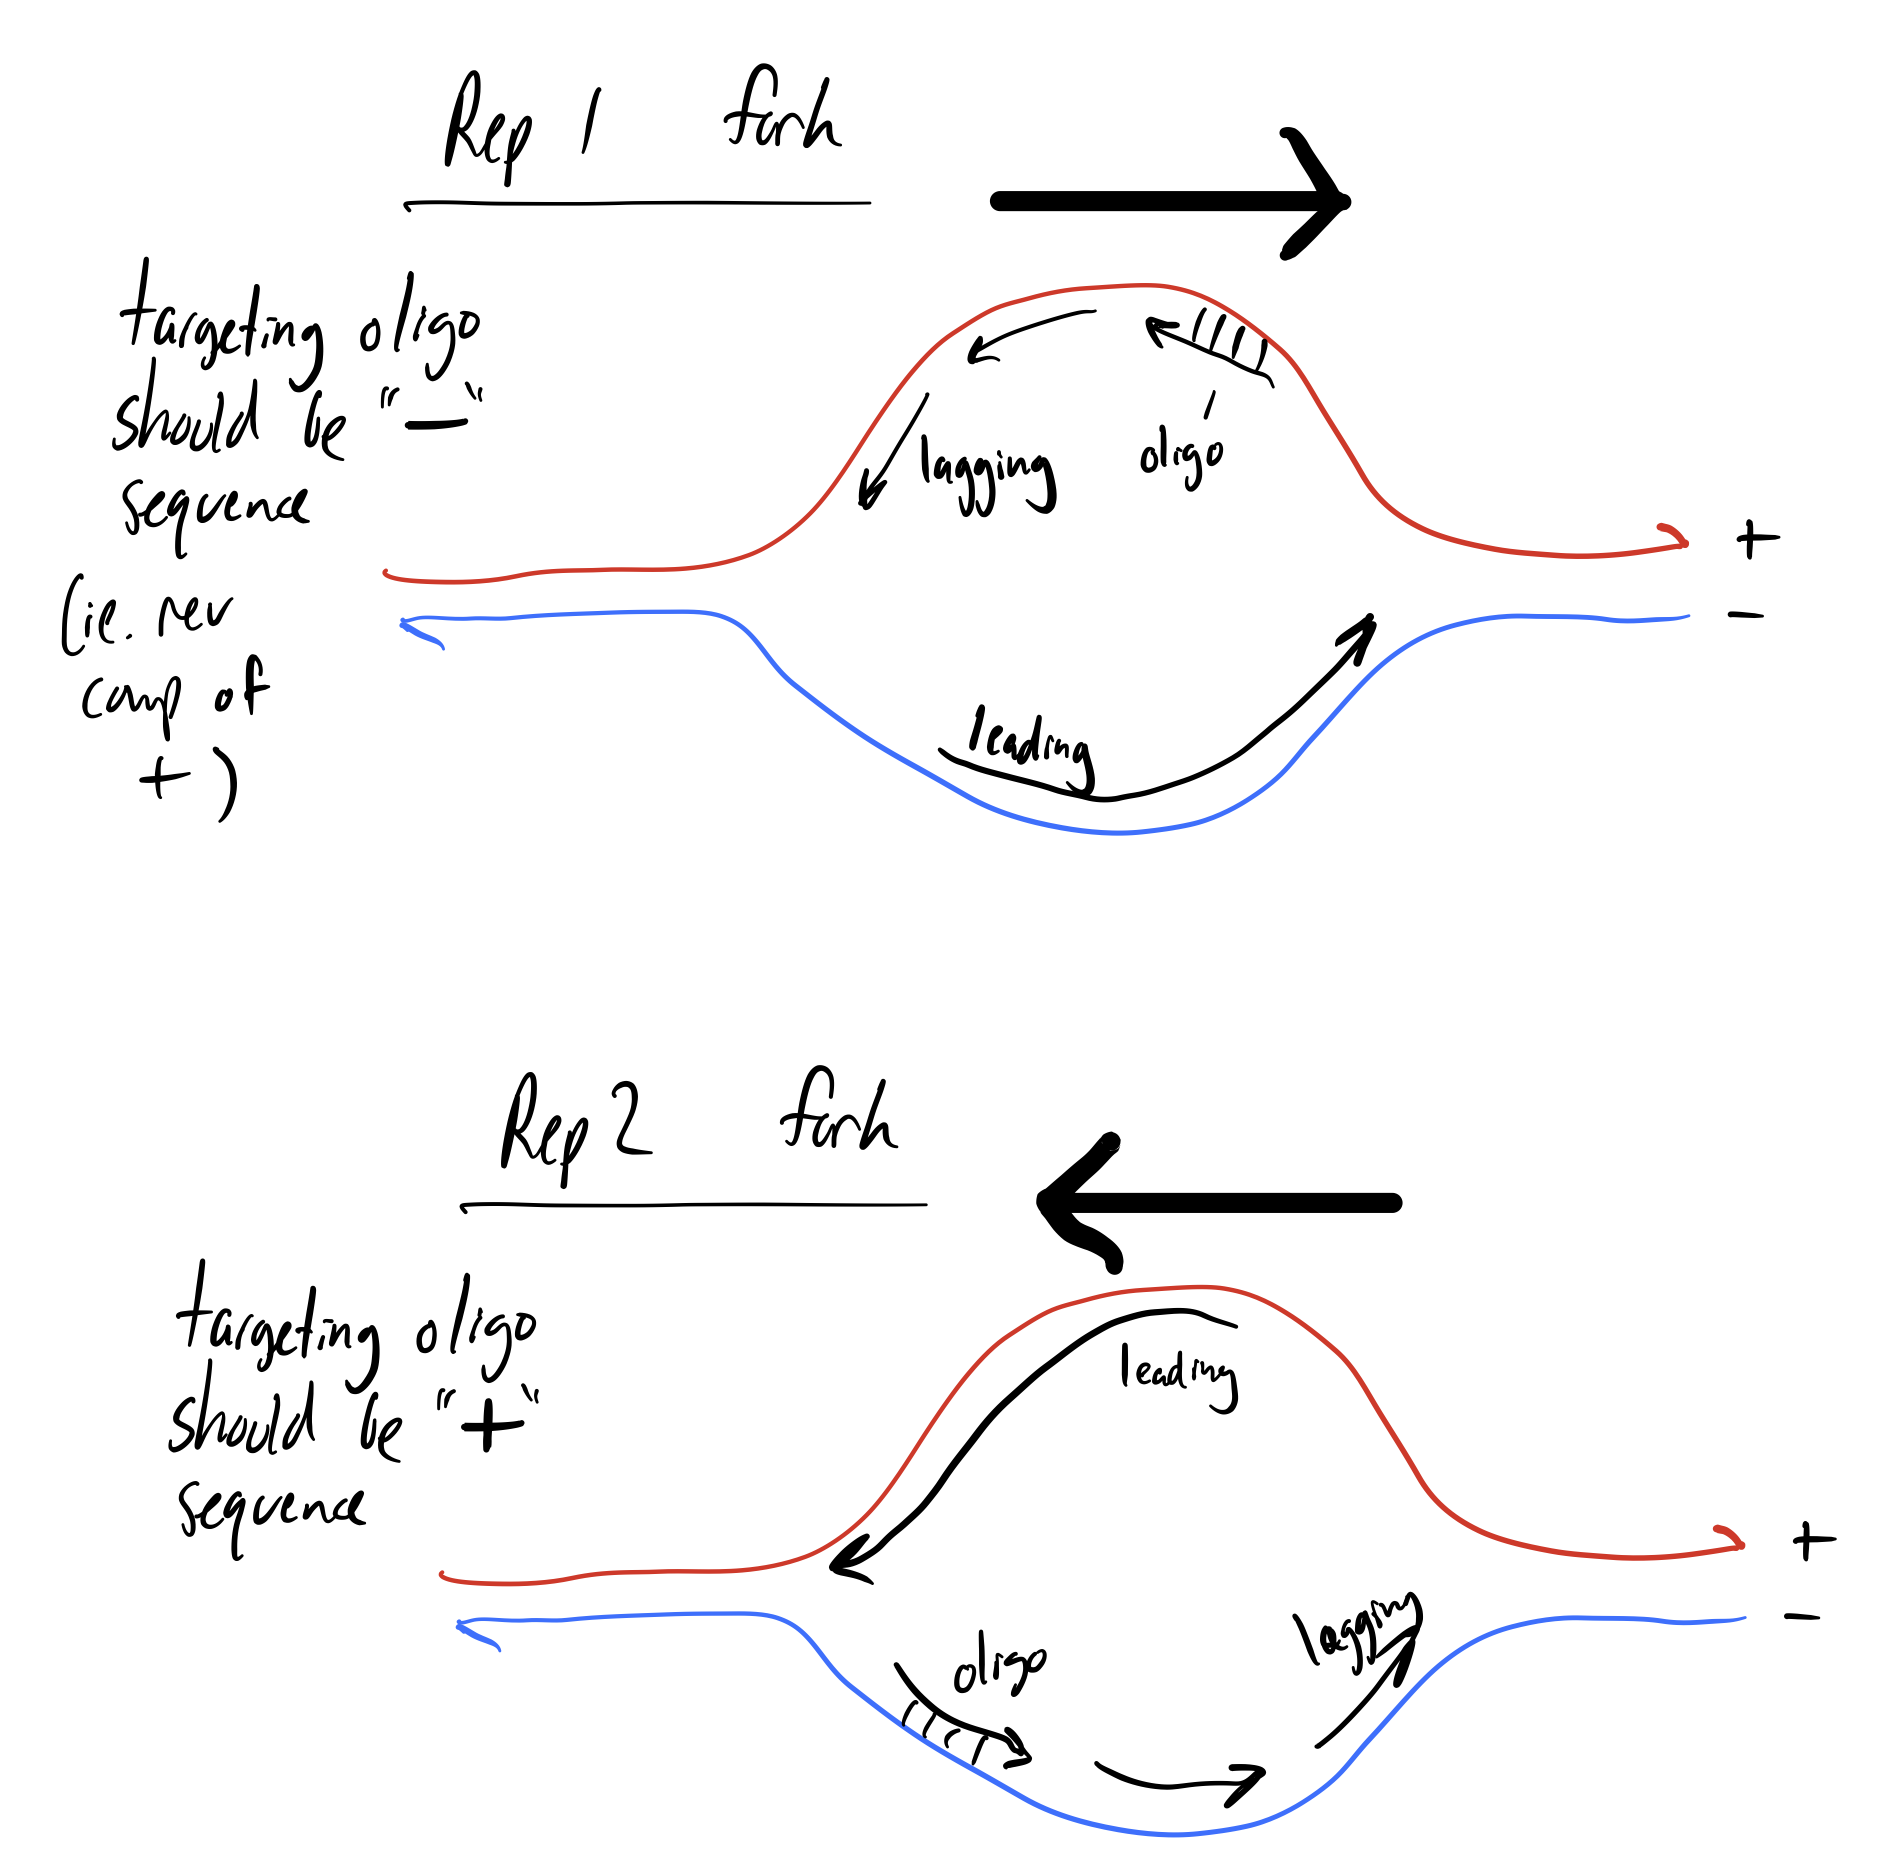 Rep 1 fork
targeting oligo
should be "—"
sequence
(ie. rev
comp of
+)
lagging
oligo
leading
+
-
Rep 2 fork
targeting oligo
should be "+"
sequence
leading
oligo
lagging
+
-